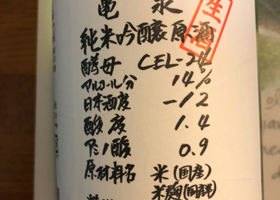 亀泉
生酒
純米吟醸原酒
酵母 CEL-24
アルコール分 14%
日本酒度 -12
酸度 1.4
アミノ酸 0.9
原材料名 米(国産)
米麹(国産米)